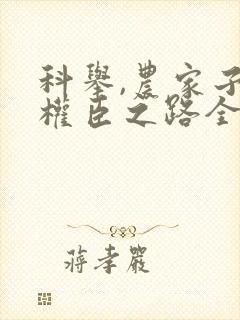 科舉,農家子
權臣之路全
蔣孝嚴